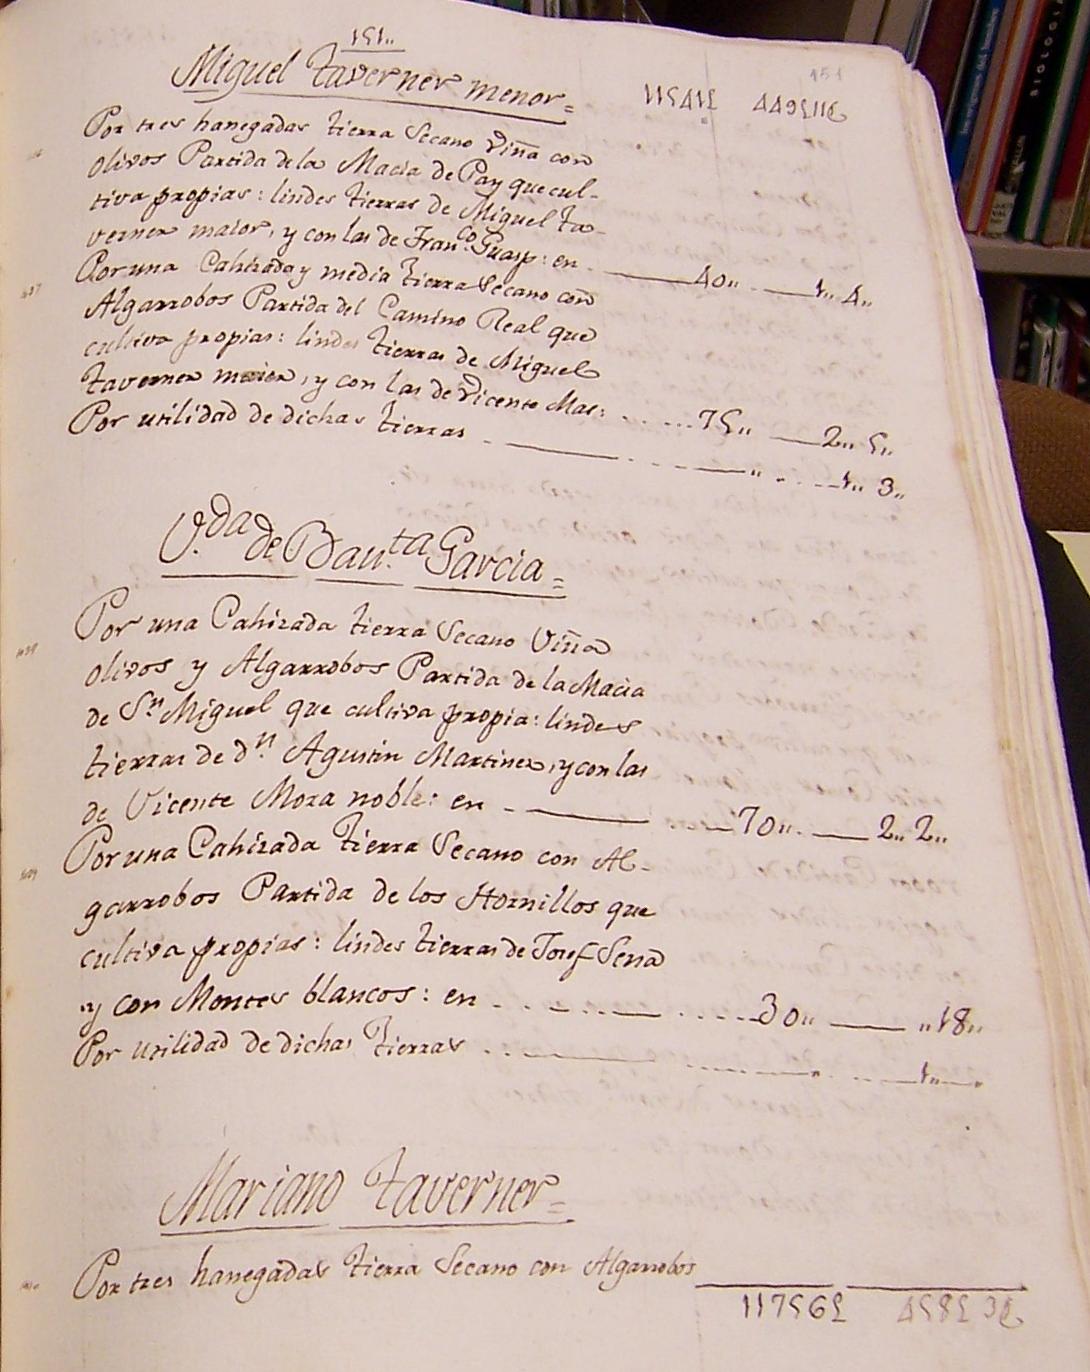 151..
151
Miguel Taverner menor=
11541£ 449£11S
Por tres hanegadas tierra Secano Viña con
olivos Partida de la Macia de Pay que cul-
tiva propias: lindes tierras de Miguel Ta-
verner maior, y con las de Fran.co Guasp: en 40,, 1,, 4,,
Por una Cahizada y media tierra Secano con
Algarrobos Partida del Camino Real que
cultiva propias: lindes tierras de Miguel
Taverner maior, y con las de Vicente Mas: 75,, 2,, 5,,
Por utilidad de dichas tierras ,, 1,, 3,,
V.da de Bau.ta Garcia=
Por una Cahizada tierra Secano Viña
olivos y Algarrobos Partida de la Macia
de S.n Miguel que cultiva propia: lindes
tierras de d.n Agustin Martinez, y con las
de Vicente Mora noble: en 70,, 2,, 2,,
Por una Cahizada tierra Secano con Al-
garrobos Partida de los Hornillos que
cultiva propias: lindes tierras de Josef Sena
y con Montes blancos: en 30,, ,,18,,
Por utilidad de dichas Tierras ,, 1,,
Mariano Taverner=
Por tres hanegadas tierra Secano con Algarrobos
11756£ 458£ 3S
BIOLOGIA